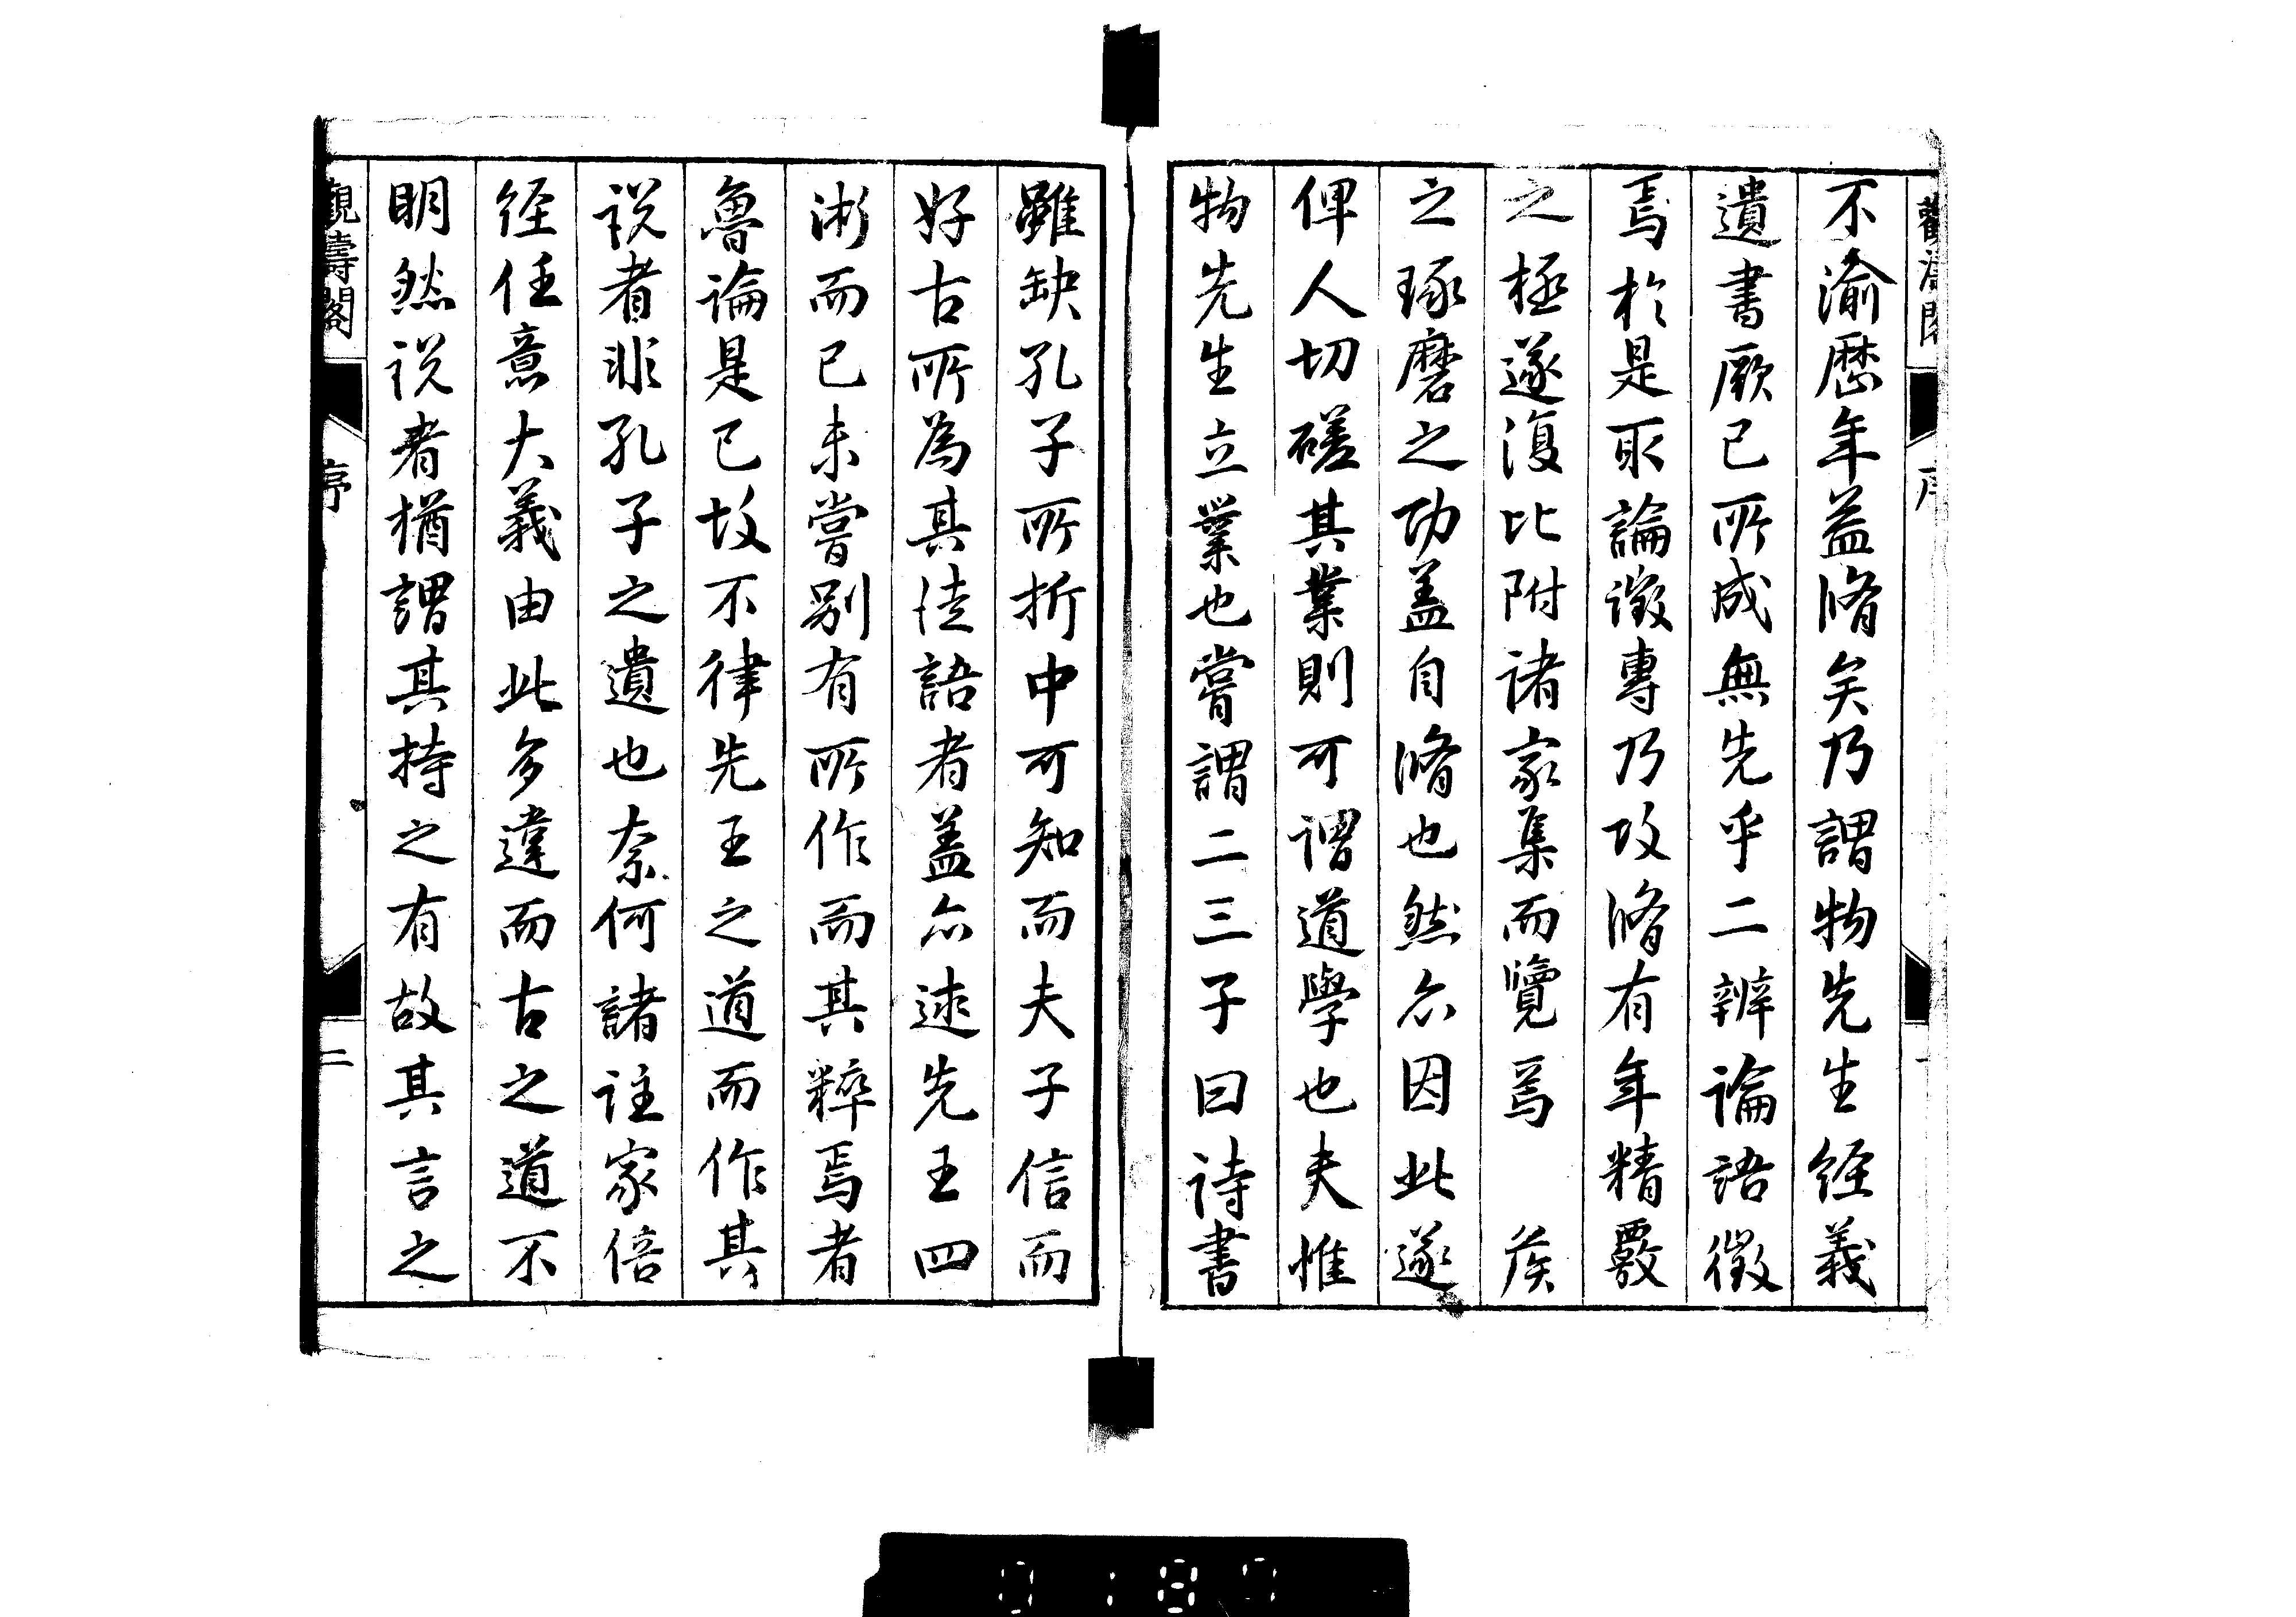 不渝歴年益脩矣乃謂物先生經義
遺書厥已所成無先乎二辨論語徵
焉於是取論徵專乃攻脩有年精覈
之極遂復比附諸家集而覽焉 侯
之琢磨之功盖自脩也然亦因此遂
俾人切磋其業則可謂道學也夫惟
物先生立業也嘗謂二三子曰詩書
雖缺孔子所折中可知而夫子信而
好古所為其法語者盖亦述先王四
術而已未嘗別有所作而其粹焉者
魯論是已故不律先王之道而作其
説者非孔子之遺也奈何諸註家倍
經任意大義由此多違而古之道不
明然説者猶謂其持之有故其言之
觀濤閣
序
二